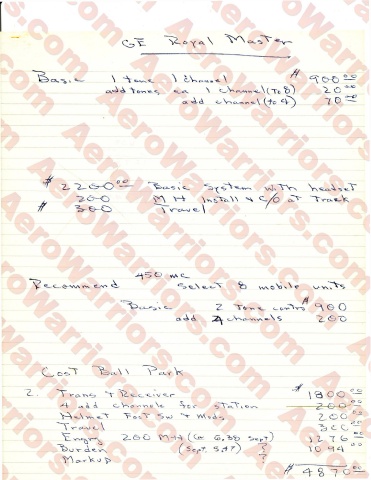 GE Royal Master
Basic 1 tone 1 channel $ 900.00
add tones ea 1 channel (to 8) 20.00
add channel (to 4) 70.00
$ 2200.00 Basic System with headset
200 MH Install & C/O at Track
$ 300 Travel
450 mc
Recommend Select 8 mobile units
Basic 2 tone contrs $ 900
add 4 channels 200
Cost Ball Park
2. Trans & Receiver $ 1800.00
4 add channels for station 200.00
Helmet Foot Sw & Mods 200.00
Travel 300.00
Engrg 200 MH (@ 6.38 Sept) 1276.00
Burden (Sept, ?) ? 1094.00
Markup ?
$ 4870.00